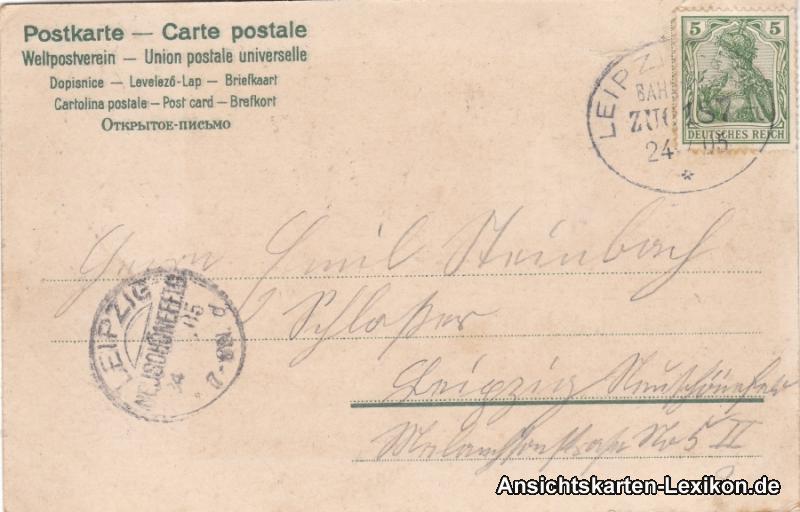 Postkarte — Carte postale
Weltpostverein — Union postale universelle
Dopisnice — Levelező-Lap — Briefkaart
Cartolina postale — Post card — Brefkort
Открытое-письмо
5 5
DEUTSCHES REICH
LEIPZIG
BAH
ZUG 157
24.7.05
Herrn Emil Steinbach
Schloßer
LEIPZIG
NEUSCHÖNEFELD
24 05
Leipzig Neuschönefeld
Melanchthonstraße No 5 II
Ansichtskarten-Lexikon.de